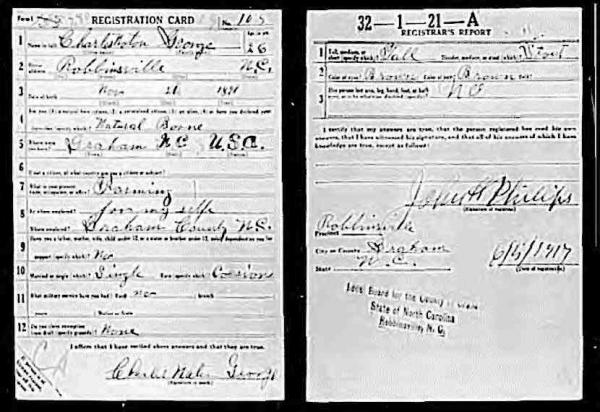 REGISTRATION CARD No. 105
1 Name in full George 26
2 Home address Robbinsville N.C.
3 Date of birth Nov 21
4 Natural Borne
5 Where were you born? Graham NC U.S.A.
6
7 What is your present trade, occupation, or office? Farming
8 By whom employed? for my self
Where employed? Graham County N.C.
9 Have you a father, mother, wife, child under 12, or a sister or brother under 12, solely dependent on you for
support (specify which)? No
10 Married or single (which)? Single Race (specify which)?
11 What military service have you had? Rank no branch
12 Do you claim exemption from draft (specify grounds)? None
I affirm that I have verified above answers and that they are true.
George
32-1-21-A
REGISTRAR'S REPORT
1 Tall, medium, or short (specify which)? Tall Slender, medium, or stout (which)? Stout
2 Color of eyes? Brown Color of hair? Brown Bald?
3 Has person lost arm, leg, hand, foot, or both No
I certify that my answers are true, that the person registered has read his own
answers, that I have witnessed his signature, and that all of his answers of which I have
knowledge are true, except as follows:
John Phillips
(Signature of registrar)
Precinct Robbinsville
City or County Graham
State N.C.
6/5/1917
(Date of registration)
Local Board for the County of
State of North Carolina
Robbinsville, N. C.